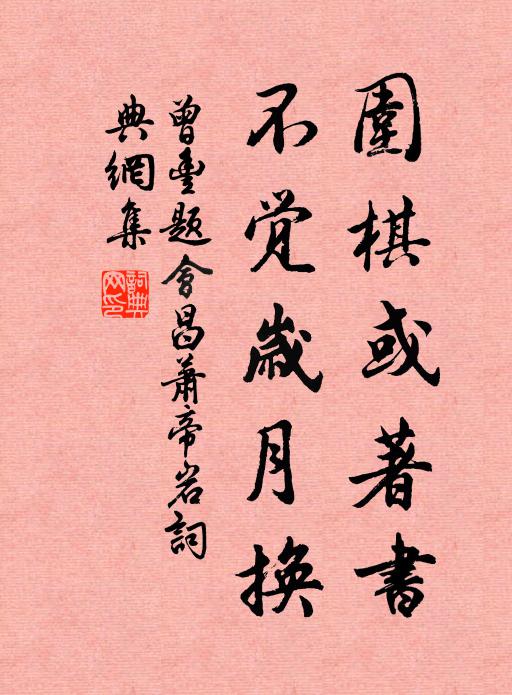 圍棋或著書
不觉歲月換
曾豊題會昌蕭帝岩詞
典網集
詞典网印